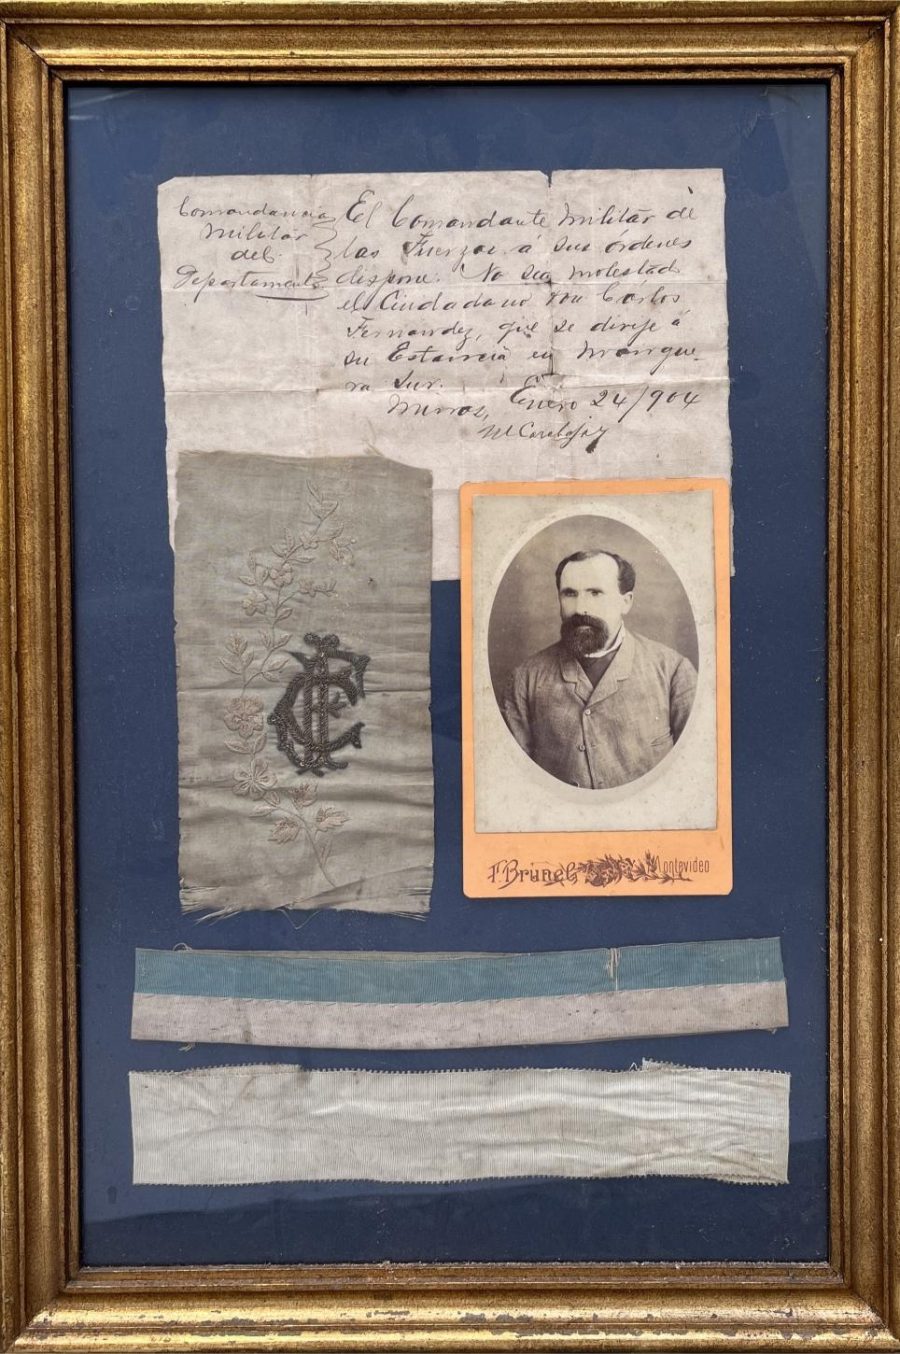 Comandancia
Militar
del
Departamento
El Comandante Militar de
las Fuerzas á sus órdenes
dispone: No sea molestado
el Ciudadano Don Cárlos
Fernández, que se dirije á
su Estancia en Mangue-
ra Sur.
Minas, Enero 24/904
CF
F. Brunel Montevideo